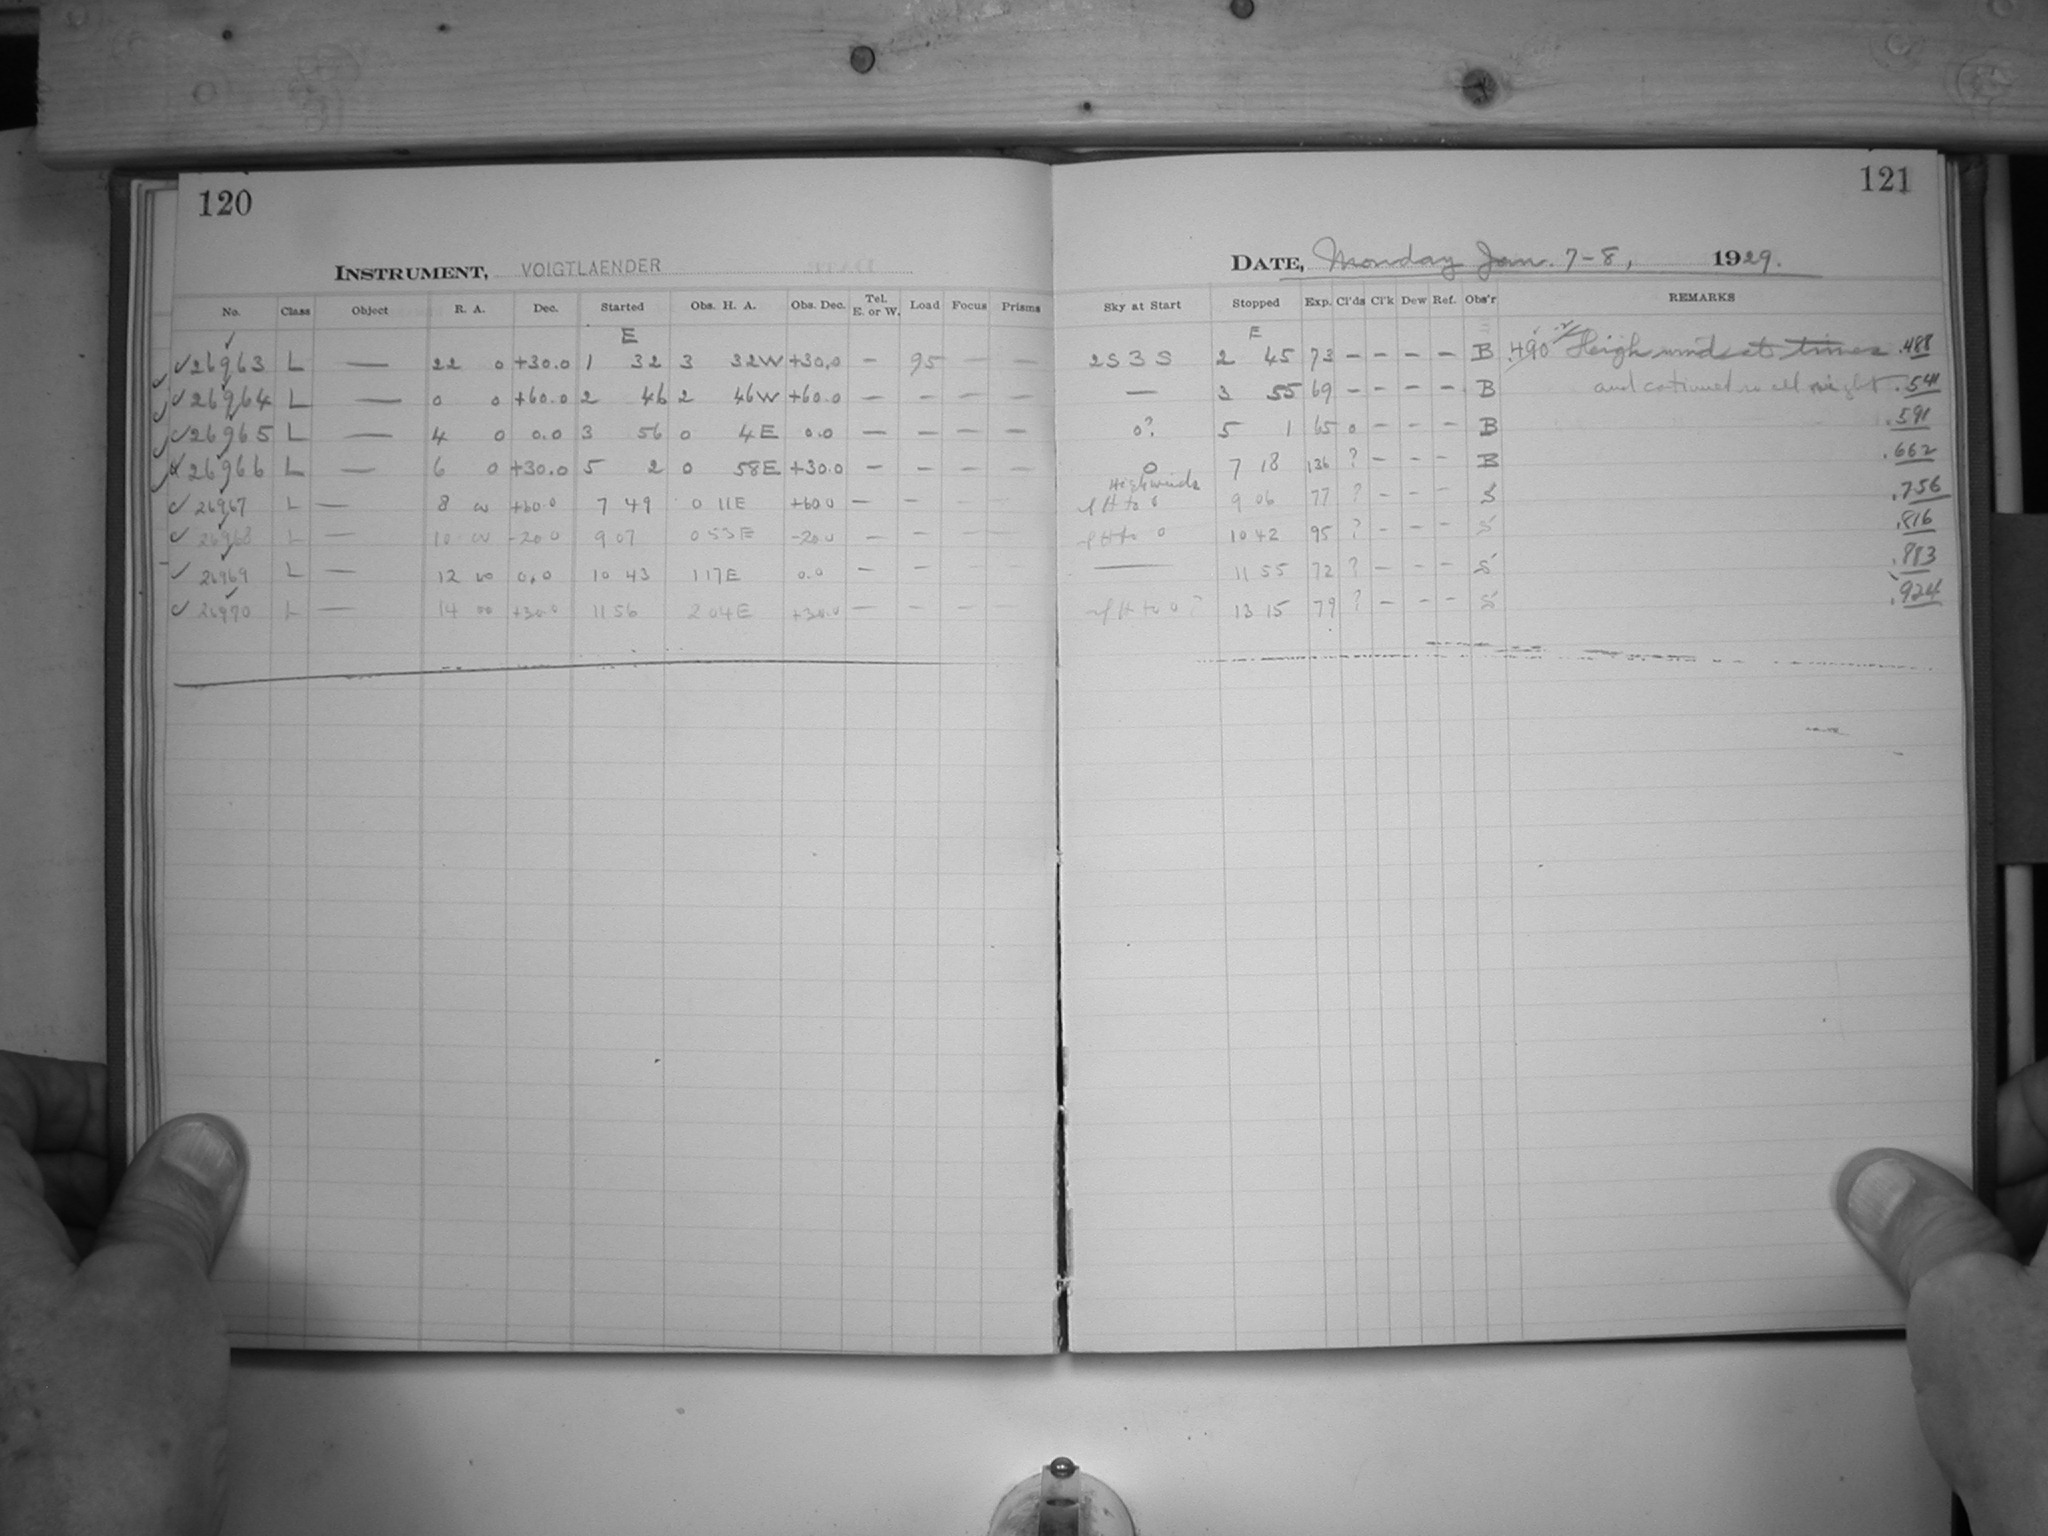 120
INSTRUMENT, VOIGTLAENDER
No. Class Object R. A. Dec. Started Obs. H. A. Obs. Dec. Tel. E. or W. Load Focus Prisms
E
✓26963 L — 22 0 +30.0 1 32 3 32W +30.0 — 95 — —
✓26964 L — 0 0 +60.0 2 46 2 46W +60.0 — — — —
✓26965 L — 4 0 0.0 3 56 0 4E 0.0 — — — —
✓26966 L — 6 0 +30.0 5 2 0 58E +30.0 — — — —
✓26967 L — 8 00 +60.0 7 49 0 11E +60.0 — — — —
✓26968 L — 10 00 -20.0 9 07 0 53E -20.0 — — — —
✓26969 L — 12 00 0.0 10 43 1 17E 0.0 — — — —
✓26970 L — 14 00 +30.0 11 56 2 04E +30.0 — — — —
121
DATE, Monday Jan. 7-8, 1929.
Sky at Start Stopped Exp. Cl'ds Cl'k Dew Ref. Obs'r REMARKS
E
2S3S 2 45 73 — — — — B .490 High winds at times .488
— 3 55 69 — — — — B and continued so all night .541
0? 5 1 65 0 — — — B .591
0 7 18 136 ? — — — B .662
High winds
to 0 9 06 77 ? — — — S .756
to 0 10 42 95 ? — — — S .816
— 11 55 72 ? — — — S .883
to 0? 13 15 79 ? — — — S .924